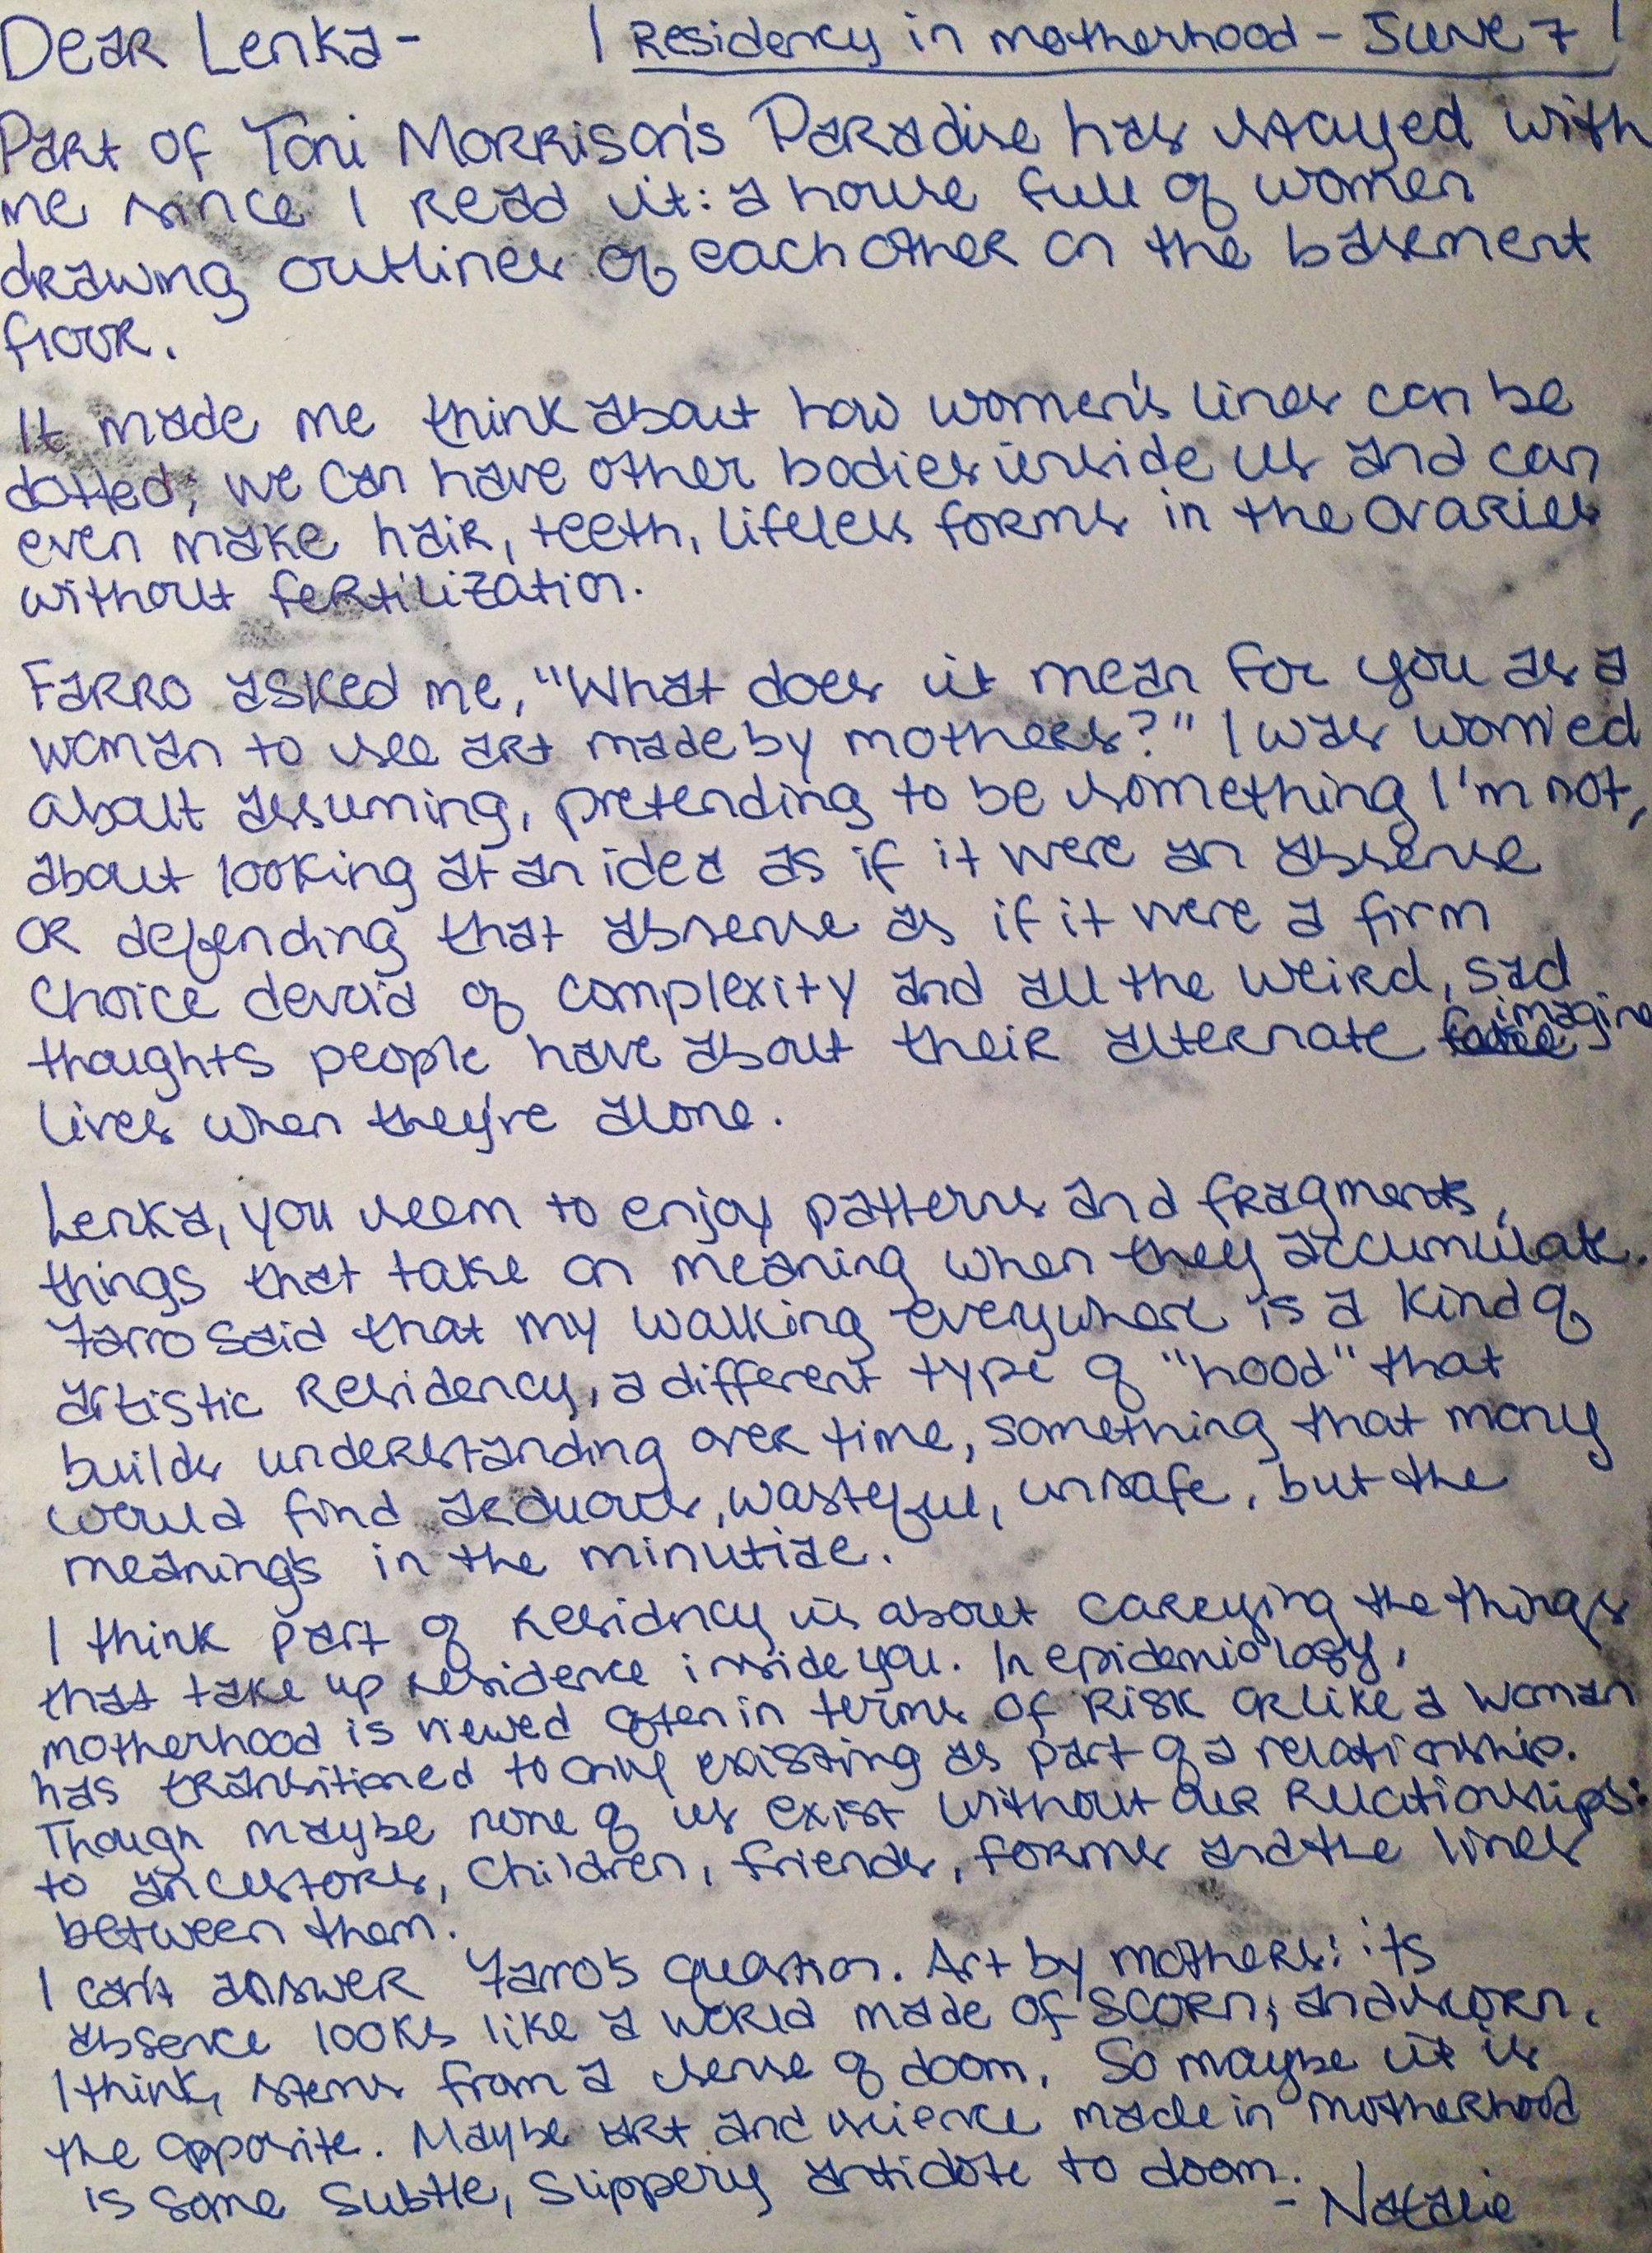 Dear Lenka - | Residency in motherhood - June 7 |
Part of Toni Morrison's Paradise has stayed with
me since I read it: a house full of women
drawing outlines of each other on the basement
floor.
It made me think about how women's lines can be
dotted; we can have other bodies inside us and can
even make hair, teeth, lifeless forms in the ovaries
without fertilization.
Farro asked me, "What does it mean for you as a
woman to see art made by mothers?" I was worried
about assuming, pretending to be something I'm not,
about looking at an idea as if it were an absense
or defending that absense as if it were a firm
choice devoid of complexity and all the weird, sad
thoughts people have about their alternate imagine
lives when they're alone.
Lenka, you seem to enjoy patterns and fragments,
things that take on meaning when they accumulate.
Farro said that my walking everywhere is a kind of
artistic Residency, a different type of "hood" that
builds understanding over time, something that many
would find arduous, wasteful, unsafe, but the
meanings in the minutiae.
I think part of Residncy is about carrying the things
that take up residence inside you. In epidemiology,
motherhood is viewed often in terms of Risk or like a woman
has transitioned to only existing as part of a relationship.
Though maybe none of us exist without our Relationships:
to ancestors, children, friends, forms and the lines
between them.
I can't answer Farro's question. Art by mothers: its
absence looks like a world made of scorn; and scorn,
I think, stems from a sense of doom. So maybe it is
the opposite. Maybe art and science made in motherhood
is some subtle, slippery antidote to doom.
- Natalie